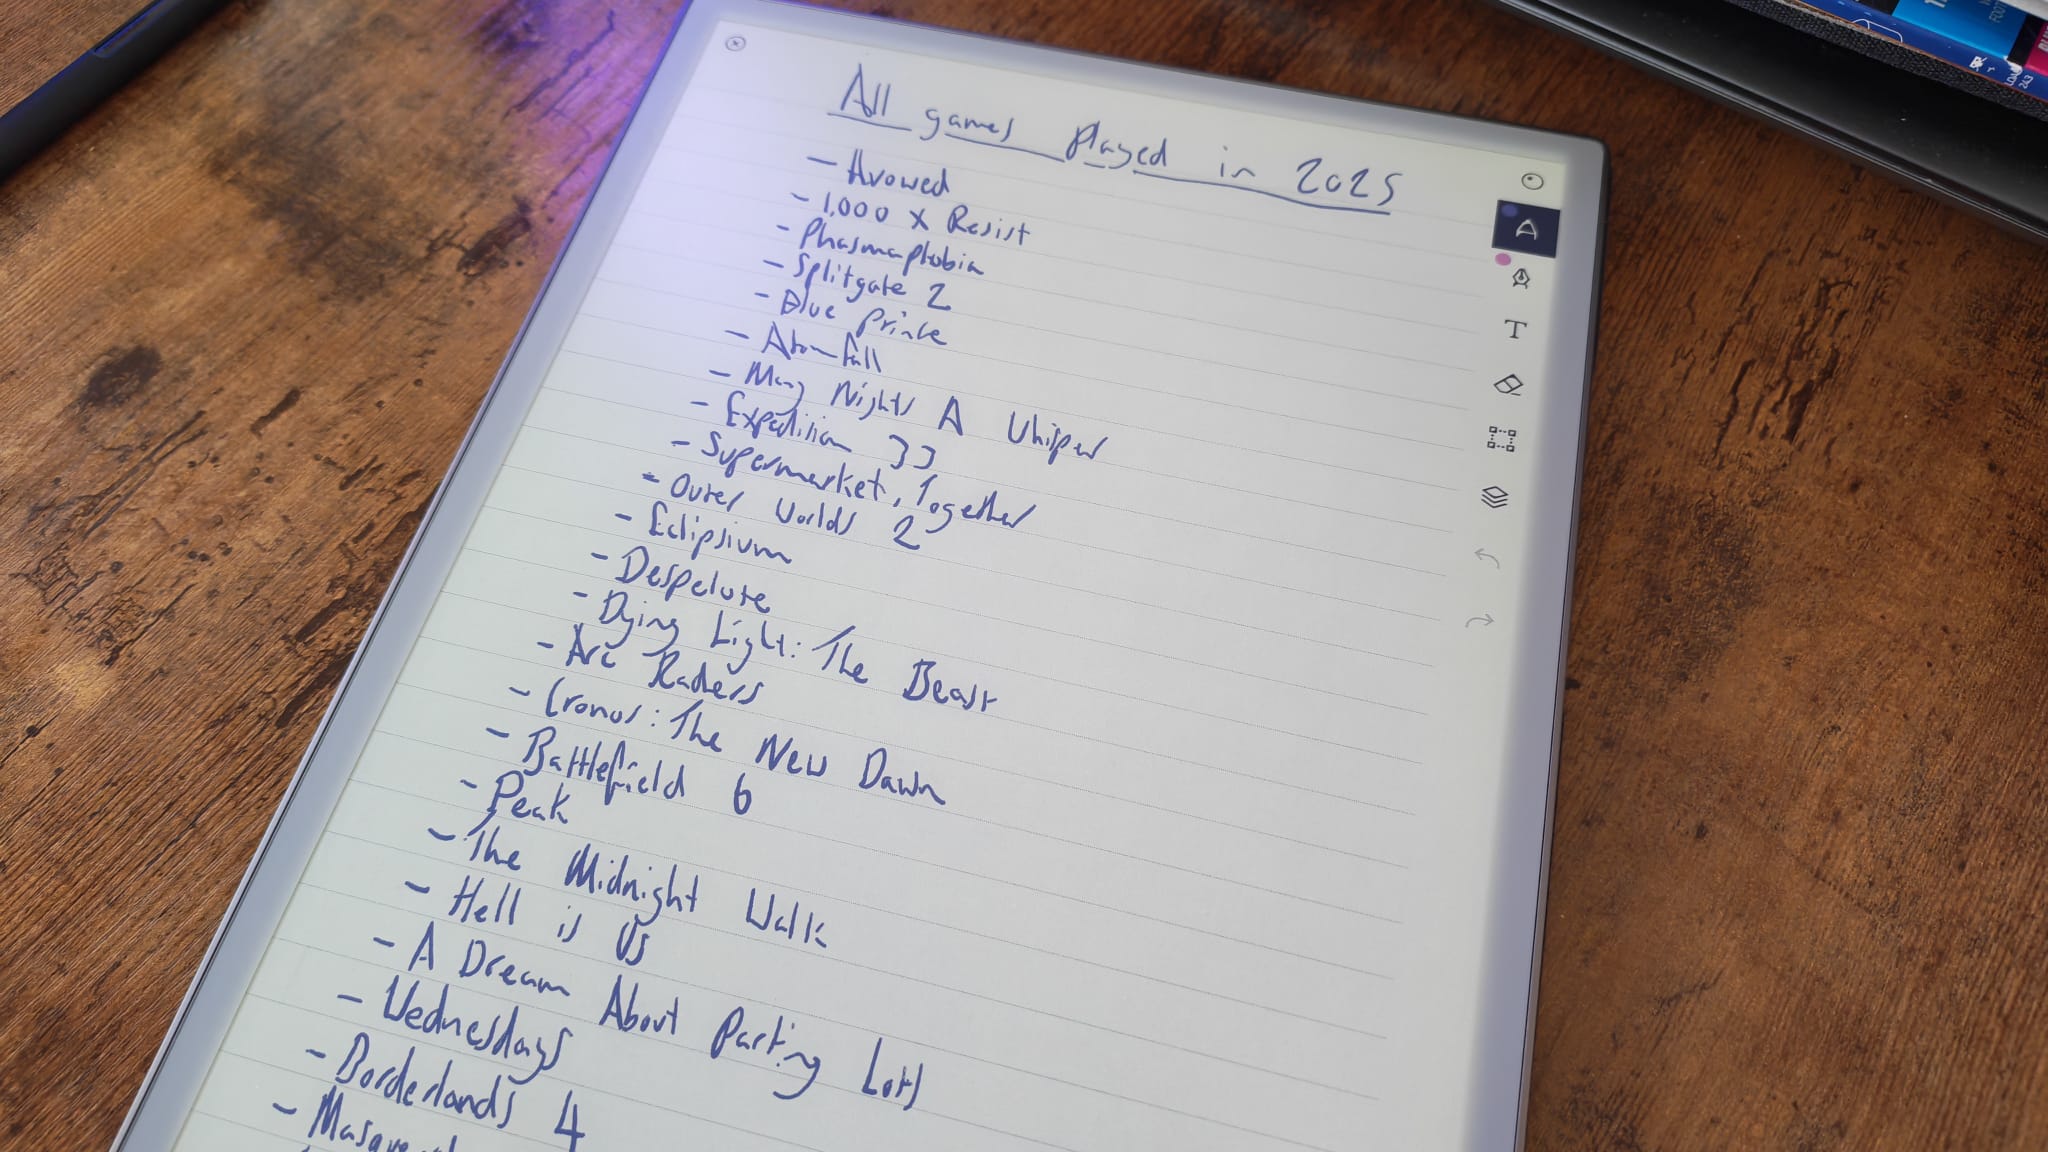 All games played in 2025
- Avowed
- 1,000 x Resist
- Phasmaphobia
- Splitgate 2
- Blue Prince
- Atomfall
- Many Nights A Whisper
- Expedition 33
- Supermarket, Together
- Outer Worlds 2
- Eclipsium
- Despelote
- Dying Light: The Beast
- Arc Raiders
- Cronos: The New Dawn
- Battlefield 6
- Peak
- The Midnight Walk
- Hell is Us
- A Dream About Parting Lots
- Wednesdays
- Borderlands 4
T